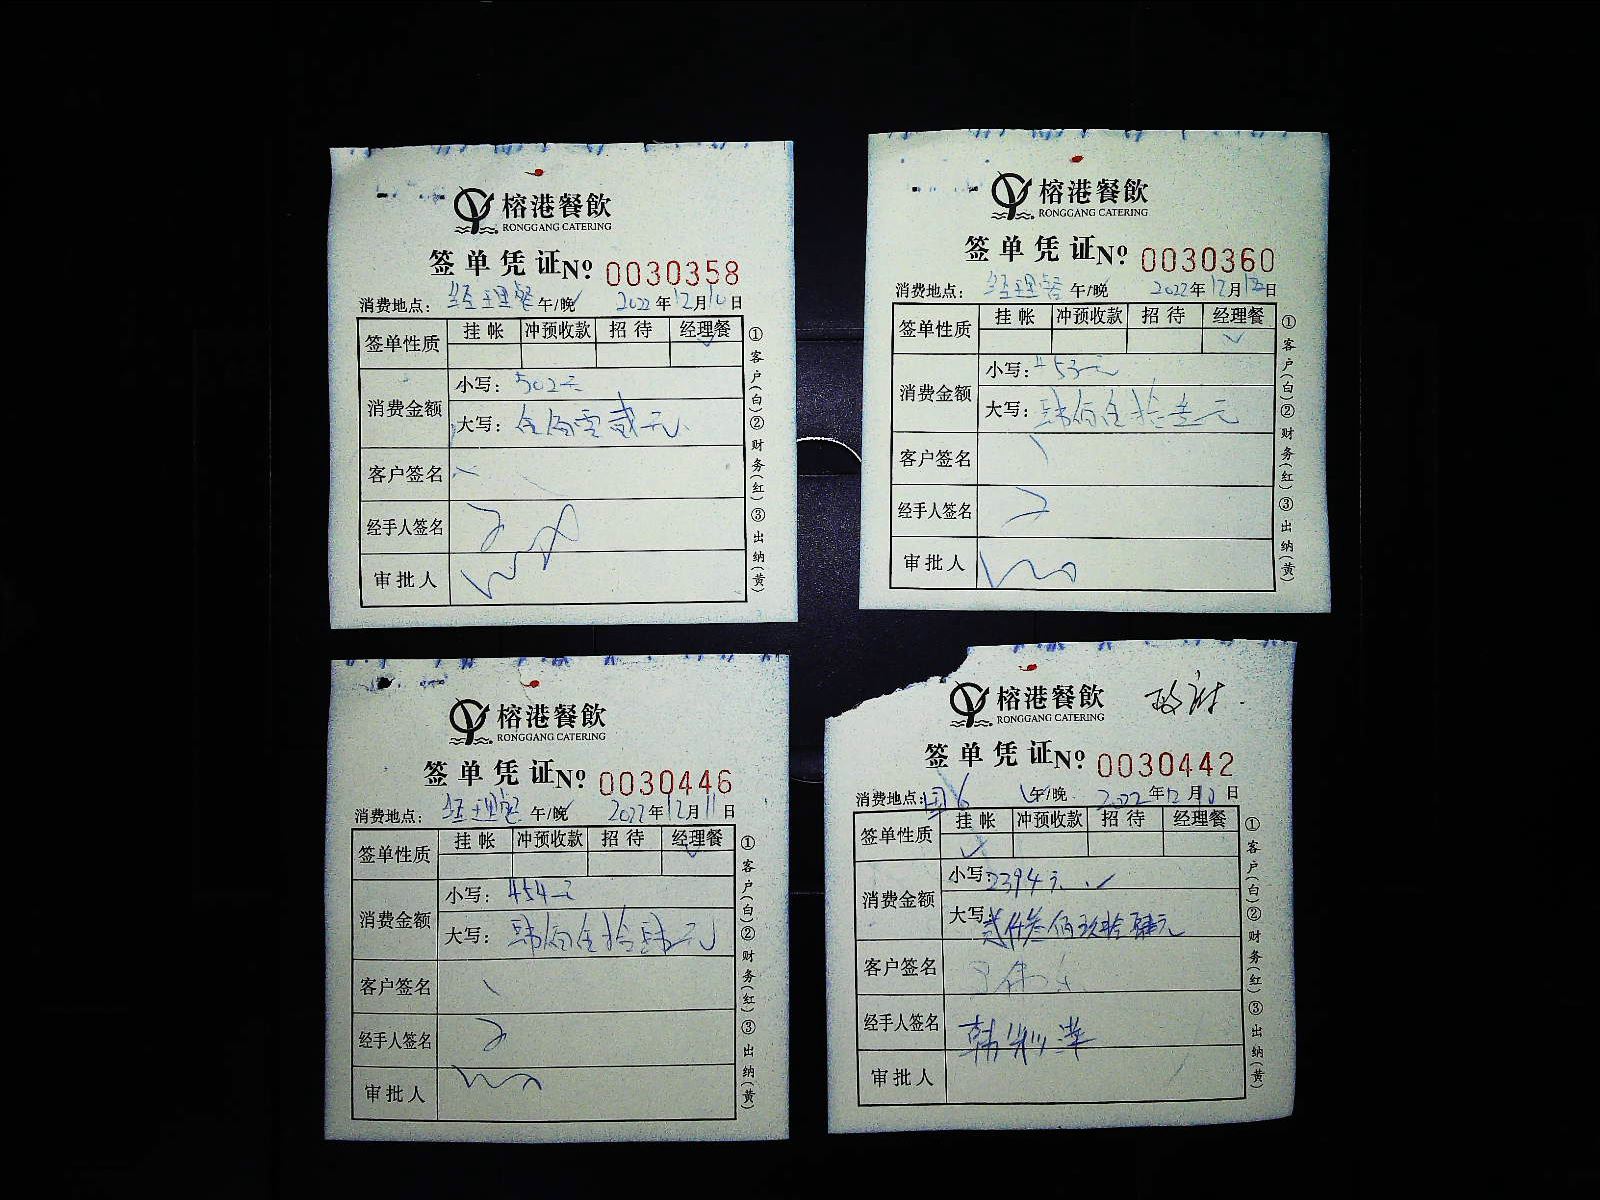 榕港餐飲
RONGGANG CATERING
签单凭证№ 0030358
消费地点: 经理餐 午/晚✓ 2022年12月10日
签单性质 挂帐 冲预收款 招待 经理餐
✓
消费金额 小写: 502元
大写: 伍佰零贰元
客户签名
经手人签名
审批人
①客户(白)②财务(红)③出纳(黄)
榕港餐飲
RONGGANG CATERING
签单凭证№ 0030360
消费地点: 经理餐 午/晚 2022年12月日
签单性质 挂帐 冲预收款 招待 经理餐
✓
消费金额 小写: 453元
大写: 肆佰伍拾叁元
客户签名
经手人签名
审批人
①客户(白)②财务(红)③出纳(黄)
榕港餐飲
RONGGANG CATERING
签单凭证№ 0030446
消费地点: 经理餐 午/晚✓ 2022年12月11日
签单性质 挂帐 冲预收款 招待 经理餐
✓
消费金额 小写: 454元
大写: 肆佰伍拾肆元
客户签名
经手人签名
审批人
①客户(白)②财务(红)③出纳(黄)
榕港餐飲 政府.
RONGGANG CATERING
签单凭证№ 0030442
消费地点: 6 午/晚 2022年12月10日
签单性质 挂帐 冲预收款 招待 经理餐
✓
消费金额 小写: 2394元. ✓
大写: 贰仟叁佰玖拾肆元
客户签名
经手人签名 韩
审批人
①客户(白)②财务(红)③出纳(黄)